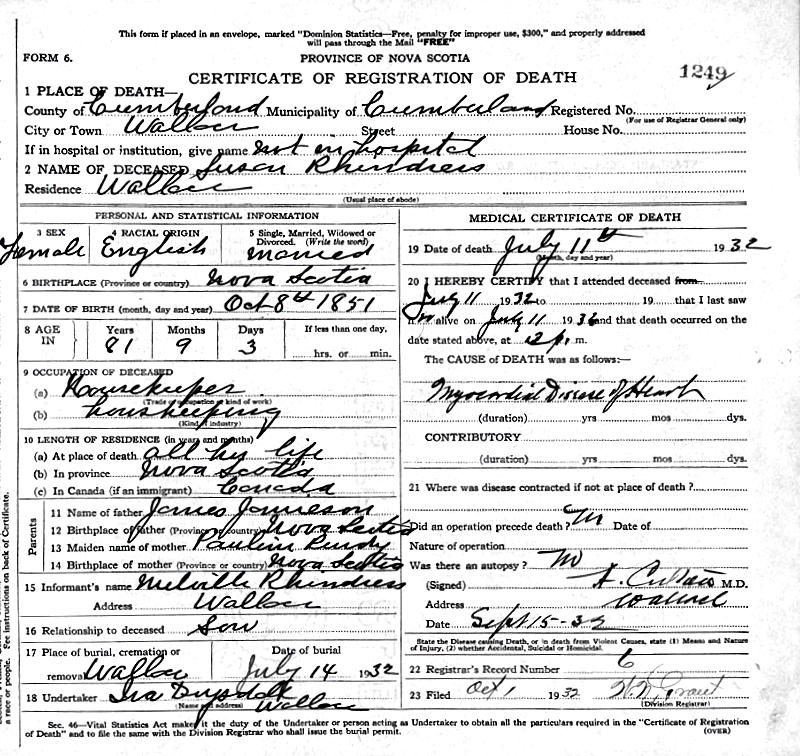 This form if placed in an envelope, marked "Dominion Statistics—Free, penalty for improper use, $300," and properly addressed
will pass through the Mail "FREE"
FORM 6.
PROVINCE OF NOVA SCOTIA
CERTIFICATE OF REGISTRATION OF DEATH
1249
1 PLACE OF DEATH—
County of Cumberland Municipality of Cumberland Registered No.
(For use of Registrar General only)
City or Town Wallace Street House No.
If in hospital or institution, give name not in hospital
2 NAME OF DECEASED Susan Rhindress
Residence Wallace
(Usual place of abode)
PERSONAL AND STATISTICAL INFORMATION
3 SEX
Female
4 RACIAL ORIGIN
English
5 Single, Married, Widowed or
Divorced. (Write the word)
married
6 BIRTHPLACE (Province or country) Nova Scotia
7 DATE OF BIRTH (month, day and year) Oct 8th 1851
8 AGE IN
Years Months Days If less than one day,
81 9 3 hrs. or min.
9 OCCUPATION OF DECEASED
(a) Housekeeper
(Trade, occupation or kind of work)
(b) houskeeping
(Kind of industry)
10 LENGTH OF RESIDENCE (in years and months)
(a) At place of death all her life
(b) In province Nova Scotia
(c) In Canada (if an immigrant) Canada
Parents
11 Name of father James Jamieson
12 Birthplace of father (Province or country) Nova Scotia
13 Maiden name of mother
14 Birthplace of mother (Province or country) Nova Scotia
15 Informant's name Melville Rhindress
Address Wallace
16 Relationship to deceased Son
17 Place of burial, cremation or
removal Wallace
Date of burial
July 14 1932
18 Undertaker Ira
(Name and address) Wallace
MEDICAL CERTIFICATE OF DEATH
19 Date of death July 11th 1932
(Month, day and year)
20 I HEREBY CERTIFY that I attended deceased from
July 11 1932 to 19 that I last saw
alive on July 11 193 and that death occurred on
date stated above, at 12 p. m.
The CAUSE of DEATH was as follows:—
Myocardial Disease of Heart
(duration) yrs mos dys.
CONTRIBUTORY
(duration) yrs mos dys.
21 Where was disease contracted if not at place of death?
Did an operation precede death? No Date of
Nature of operation
Was there an autopsy? No
(Signed) A. M.D.
Address Wallace
Date Sept 15-32
State the Disease causing Death, or in death from Violent Causes, state (1) Means and Nature
of Injury, (2) whether Accidental, Suicidal or Homicidal.
22 Registrar's Record Number 6
23 Filed Oct 1 1932 Grant
(Division Registrar)
Sec. 46—Vital Statistics Act makes it the duty of the Undertaker or person acting as Undertaker to obtain all the particulars required in the "Certificate of Registration
of Death" and to file the same with the Division Registrar who shall issue the burial permit.
(OVER)
a race or people. Fee instructions on back of Certificate.